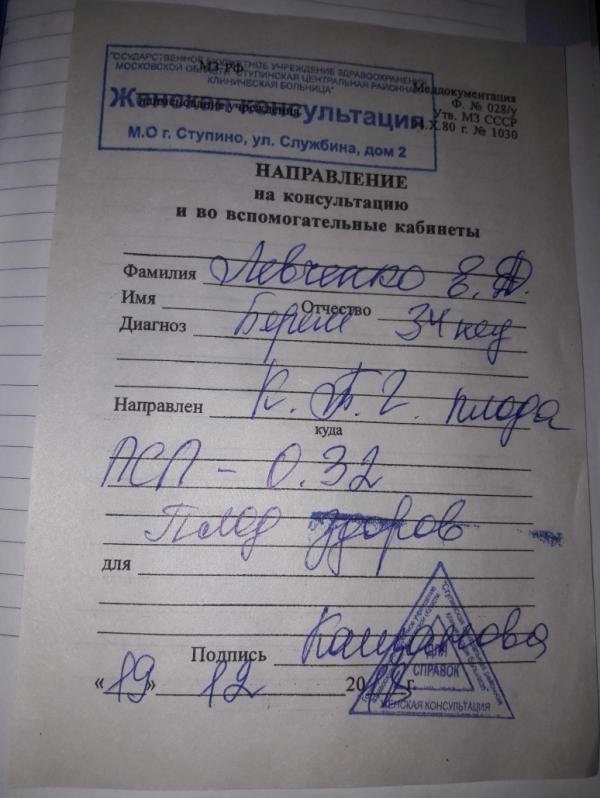 "ГОСУДАРСТВЕННОЕ БЮДЖЕТНОЕ УЧРЕЖДЕНИЕ ЗДРАВООХРАНЕНИЯ
МЗ РФ
МОСКОВСКОЙ ОБЛАСТИ "СТУПИНСКАЯ ЦЕНТРАЛЬНАЯ РАЙОННАЯ
КЛИНИЧЕСКАЯ БОЛЬНИЦА"
Женская консультация
наименование учреждения
М.О г. Ступино, ул. Службина, дом 2
Меддокументация
Ф. № 028/у
Утв. МЗ СССР
4.X.80 г. № 1030
НАПРАВЛЕНИЕ
на консультацию
и во вспомогательные кабинеты
Фамилия Левченко Е.
Имя Отчество
Диагноз Берем 34 нед
Направлен К. Т. Г. плода
куда
ПСП - 0.32
Плод здоров
для
Подпись
"19" 12 2018 г.
ДЛЯ
СПРАВОК
ЖЕНСКАЯ КОНСУЛЬТАЦИЯ